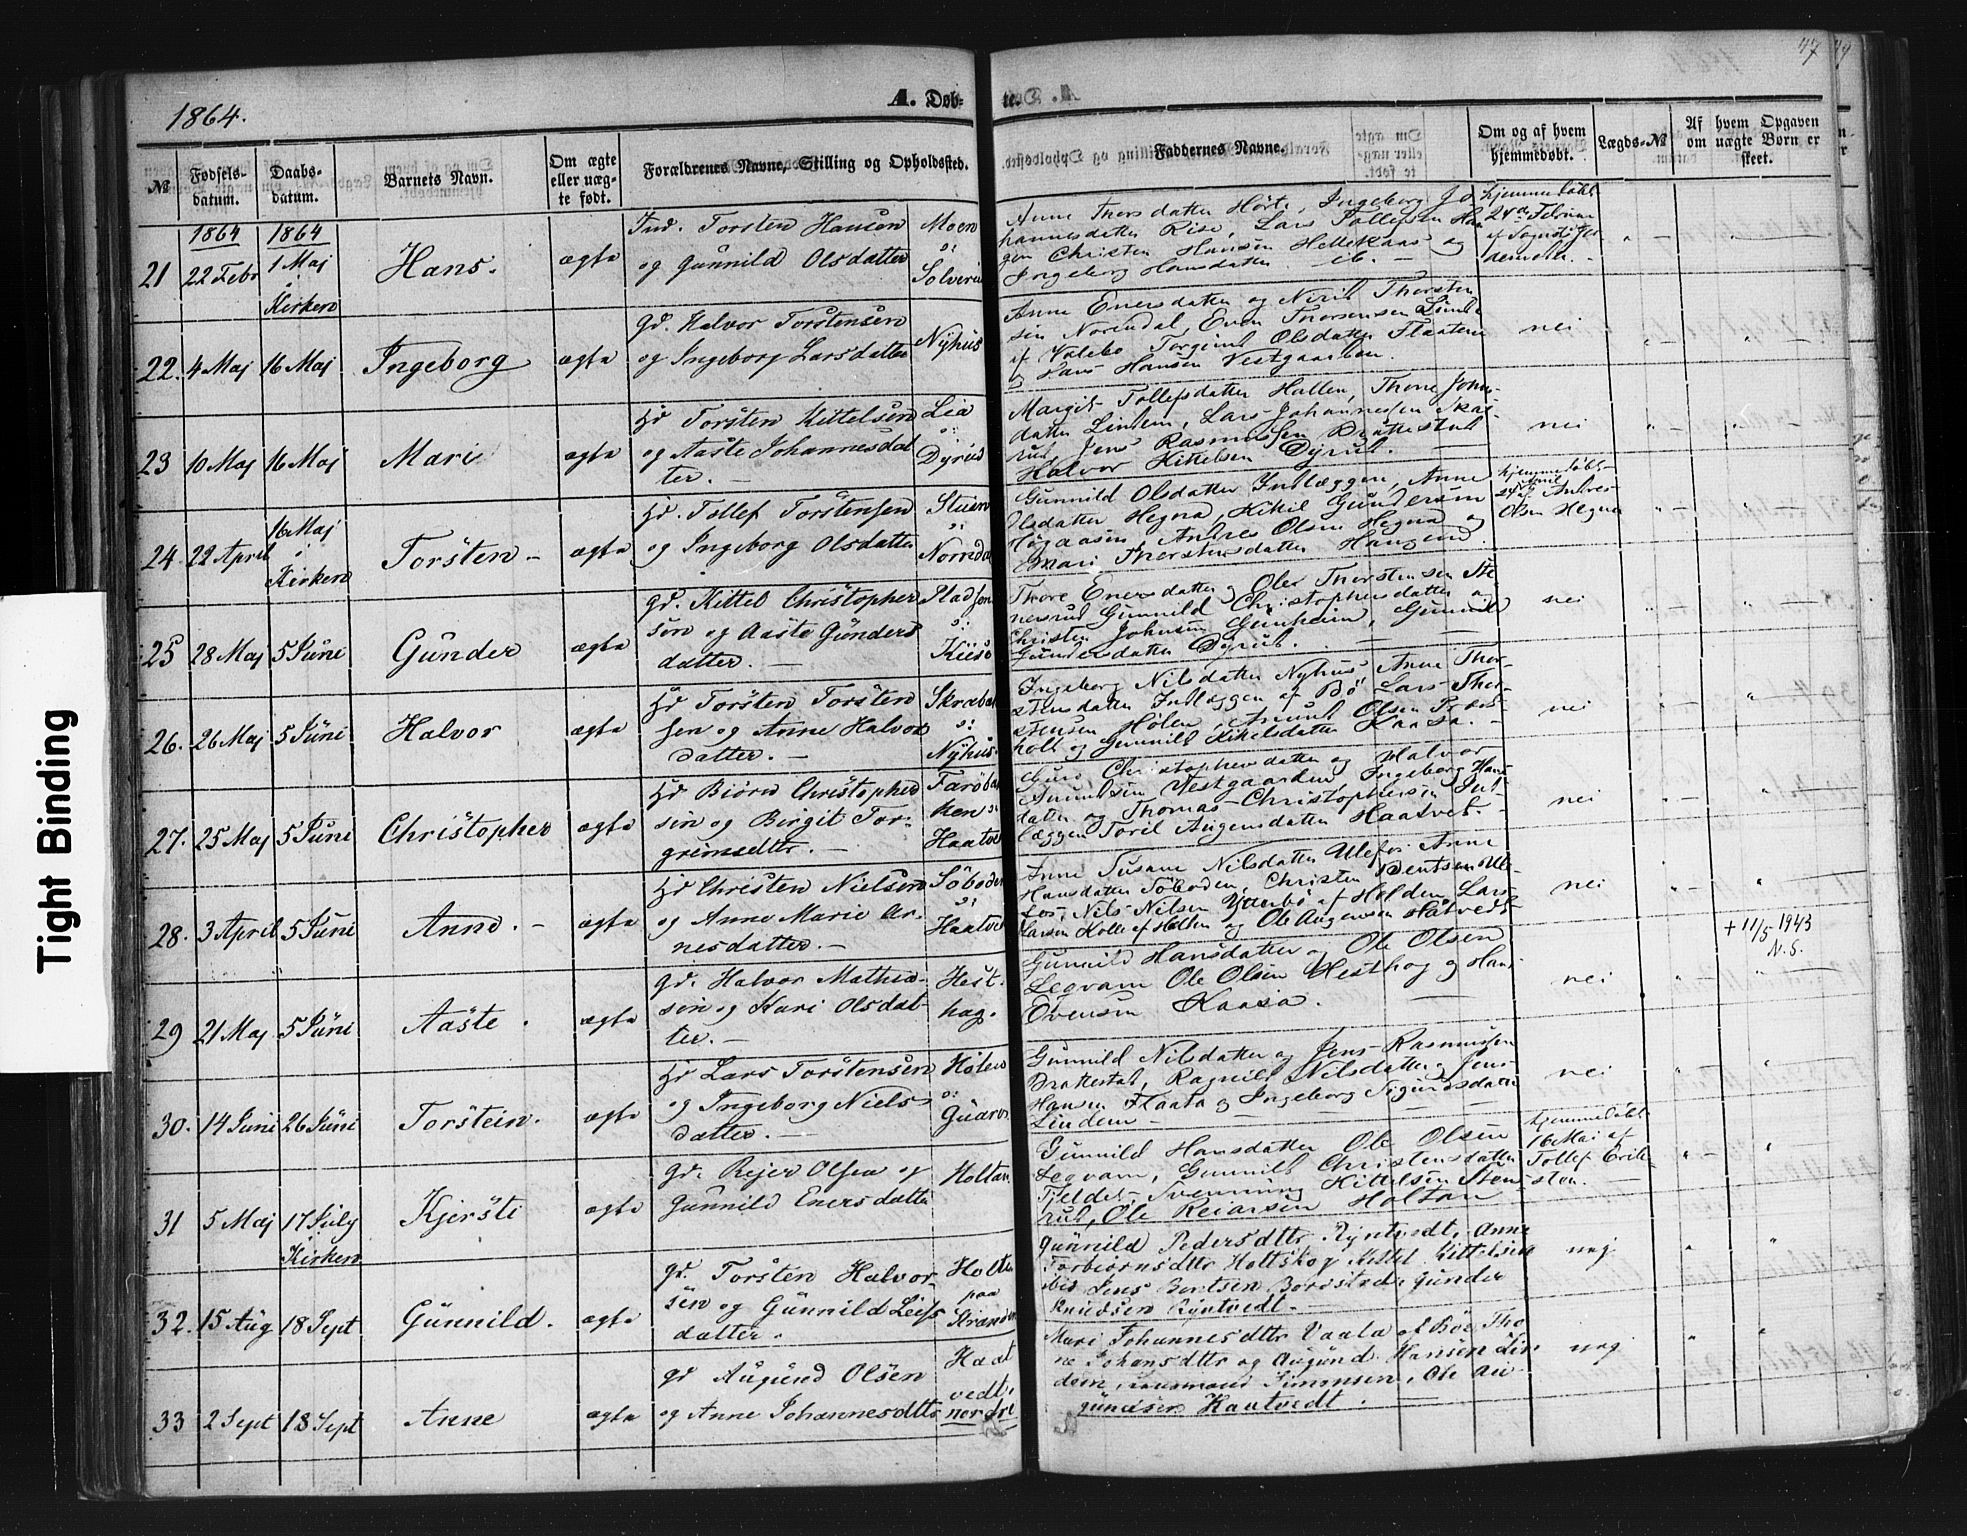 1864.
A. Døb-
te.
47
49
№
Fødsels-
datum.
Daabs-
datum.
Barnets Navn.
Om ægte
eller uæg-
te født.
Forældrenes Navne, Stilling og Opholdssted.
Faddernes Navne.
Om og af hvem
hjemmedøbt.
Lægds-№
Af hvem Opgaven
om uægte Børn er
skeet.
21
1864
22 Febr
1864
1 Maj
i
Kirken
Hans.
ægte
Ind. Torsten Hansen
og Gunnild Olsdatter
Moen
Anne Thorsdatter Hørte, Ingeborg Jo
hannesdatter Rise, Lars Tollefsen Haa
gen Christen Hansen Hellekaas og
Ingeborg Hansdatter ib. -
hjemmedøbt
24de Februar
22.
4 Maj
16 Maj
Ingeborg
ægte
gd. Halvor Torstensen
og Ingeborg Larsdatter
Nyhus
Anne Enersdatter og Nirid Thorsten
sen Norendal, Even Thorsensen Linde
af Valebo Torgund Olsdatter Flaaten
og Lars Hansen Vestgaarden.
nei
23
10 Maj
16 Maj
Mari
ægte
Hd Torsten Kittelsen
og Aaste Johannesdat
ter. -
Lia
Dyrud
Margit Tollefsdatter Hallen, Thone Johns-
datter Lindem, Lars Johannessen Skar
rud, Jens Rasmussen Brattestad
Halvor Kittelsen Dyrud. -
nei
24.
22 April
16 Maj
i
Kirken
Torsten -
ægte
Hd. Tollef Torstensen
og Ingeborg Olsdatter
Stuen
Norredal
Gunnild Olsdatter Indlæggen, Anne
Olsdatter Hegna, Kittil Gundersen
Høgaasen, Andres Olsen Hegna og
Mari Thorstensdatter Haugene
hjemmedøbt
24 April
af Andres
Olsen Hegna
25
28 Maj
5 Juni
Gunder
ægte
gd. Kittel Christopher
sen og Aaste Gunders
datter. -
Thore Enersdatter og Olev Thorstensen Ste
nersrud Gunnild Christophersdatter og
Christen Johnsen Gunheim, Gunnild
Gundersdatter Dyrud.
nei
26.
26 Maj
5 Juni
Halvor
ægte
Hd Torsten Torsten
sen og Anne Halvors
datter. -
Nyhus
Ingeborg Nilsdatter Nyhus Anne Thor-
stensdatter Indlæggen af Bø Lars Thor-
stensen Hølen, Amund Olsen
holt og Gunnild Kittelsdatter Kaasa. -
nei
27.
25 Maj
5 Juni
Christopher
ægte
Hd Biørn Christopher
sen og Birgit Tor-
grimsdtter. -
Guro Christophersdatter og Halvor
Amundsen Vestgaarden Ingeborg Hans
datter og Thomas Christophersen Ind
læggen Toril Augensdatter Haatvet. -
nei
28.
3 April
5 Juni
Anne. -
ægte
Hd Christen Nielsen
og Anne Marie Ar-
nesdatter. -
Søboden
Haatvet
Anne Susane Nilsdatter Ulefos Anne
Hansdatter Søboden, Christen Bentsen Ule
fos, Nils Nilsen Ytterbø af Holden, Lars
Larsen Kolle af Holden og Ole Augensen Hatvedt
nei
+ 11/5 1943
N.S.
29
21 Maj
5 Juni
Aaste.
ægte
gd. Halvor Mathia-
sen og Kari Olsdat-
ter. -
Hest-
hag.
Gunnild Hansdatter og Ole Olsen
Legvam Ole Olsen Hesthag og Hans
Evensen Kaasa.
nei
30.
14 Juni
26 Juni
Torstein.
ægte
Hd Lars Torstensen
og Ingeborg Niels
datter. -
Hølen
Gunnild Nilsdatter og Jens Rasmussen
Brattestad, Ragnild Nilsdatter og Jens
Hansen Flaata og Ingeborg Sigurdsdatter
Lindem -
nei
31
5 Maj
17 July
Kirken
Kjersti
ægte
gd. Rejer Olsen og
Gunnild Enersdatter
Holtan
Gunnild Hansdatter Ole Olsen
Legvam, Gunnild Christensdatter
Fjeldet, Svenning Kittelsen Sten
rud, Ole Reiarsen Holtan
hjemmedøbt
16 Mai af
Tollef Erik-
sten.
32.
15 Aug
18 Sept
Gunnild.
ægte
gd. Torsten Halvor
sen og Gunnild Leifs
datter.
Holten
paa
Stranden
Gunnild Pedersdttr Ryntvedt, Anne
Torbiørnsdttr Holtskog Kittel Kittelsen
ibid Jens Bentsen Borrstad, Gunder
Knudsen Ryntvedt. -
nej
33
2 Sept
18 Sept
Anne
ægte
gd Augund Olsen
og Anne Johannesdttr
Haat
vedt,
nordre
Mari Johannesdttr Vaala af Bøe, Tho
ne Johansdttr og Augund Hansen Lin
dem, Simonsen, Ole Au
gundsen Haatvedt.
nej
Tight Binding